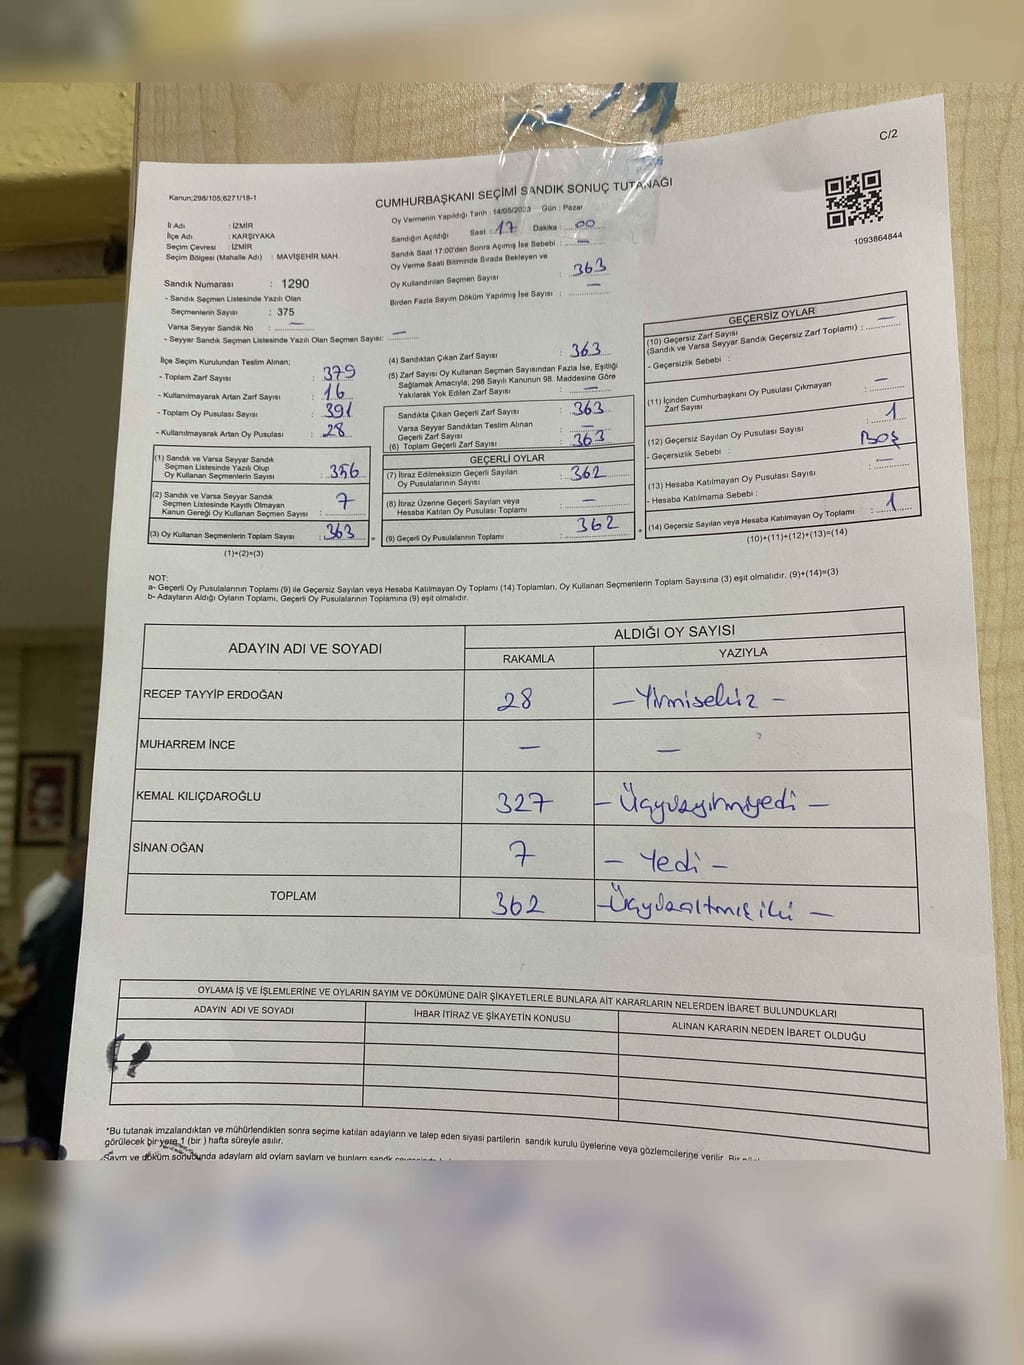 C/2
Kanun;298/105;6271/18-1
CUMHURBAŞKANI SEÇİMİ SANDIK SONUÇ TUTANAĞI
1093864844
İl Adı : İZMİR
İlçe Adı : KARŞIYAKA
Seçim Çevresi : İZMİR
Seçim Bölgesi (Mahalle Adı) : MAVİŞEHİR MAH.
Oy Vermenin Yapıldığı Tarih : 14/05/2023 Gün : Pazar
Sandığın Açıldığı Saat : 17 Dakika : 00
Sandık Saat 17:00'den Sonra Açımış İse Sebebi : —
Oy Verme Saati Bitiminde Sırada Bekleyen ve
Oy Kullandırılan Seçmen Sayısı : 363
Birden Fazla Sayım Döküm Yapılmış İse Sayısı : —
Sandık Numarası : 1290
- Sandık Seçmen Listesinde Yazılı Olan
Seçmenlerin Sayısı : 375
Varsa Seyyar Sandık No : —
- Seyyar Sandık Seçmen Listesinde Yazılı Olan Seçmen Sayısı: —
İlçe Seçim Kurulundan Teslim Alınan;
- Toplam Zarf Sayısı : 379
- Kullanılmayarak Artan Zarf Sayısı : 16
- Toplam Oy Pusulası Sayısı : 391
- Kullanılmayarak Artan Oy Pusulası : 28
(1) Sandık ve Varsa Seyyar Sandık
Seçmen Listesinde Yazılı Olup
Oy Kullanan Seçmenlerin Sayısı : 356
(2) Sandık ve Varsa Seyyar Sandık
Seçmen Listesinde Kayıtlı Olmayan
Kanun Gereği Oy Kullanan Seçmen Sayısı : 7
(3) Oy Kullanan Seçmenlerin Toplam Sayısı : 363
(1)+(2)=(3)
(4) Sandıktan Çıkan Zarf Sayısı : 363
(5) Zarf Sayısı Oy Kullanan Seçmen Sayısından Fazla İse, Eşitliği
Sağlamak Amacıyla; 298 Sayılı Kanunun 98. Maddesine Göre
Yakılarak Yok Edilen Zarf Sayısı : —
Sandıkta Çıkan Geçerli Zarf Sayısı : 363
Varsa Seyyar Sandıktan Teslim Alınan
Geçerli Zarf Sayısı : —
(6) Toplam Geçerli Zarf Sayısı : 363
GEÇERLİ OYLAR
(7) İtiraz Edilmeksizin Geçerli Sayılan
Oy Pusulalarının Sayısı : 362
(8) İtiraz Üzerine Geçerli Sayılan veya
Hesaba Katılan Oy Pusulası Toplamı : —
(9) Geçerli Oy Pusulalarının Toplamı : 362
GEÇERSİZ OYLAR
(10) Geçersiz Zarf Sayısı
(Sandık ve Varsa Seyyar Sandık Geçersiz Zarf Toplamı) : —
- Geçersizlik Sebebi :
(11) İçinden Cumhurbaşkanı Oy Pusulası Çıkmayan
Zarf Sayısı : —
(12) Geçersiz Sayılan Oy Pusulası Sayısı : 1
- Geçersizlik Sebebi : BOŞ
(13) Hesaba Katılmayan Oy Pusulası Sayısı : —
- Hesaba Katılmama Sebebi :
(14) Geçersiz Sayılan veya Hesaba Katılmayan Oy Toplamı : 1
(10)+(11)+(12)+(13)=(14)
NOT:
a- Geçerli Oy Pusulalarının Toplamı (9) ile Geçersiz Sayılan veya Hesaba Katılmayan Oy Toplamı (14) Toplamları, Oy Kullanan Seçmenlerin Toplam Sayısına (3) eşit olmalıdır. (9)+(14)=(3)
b- Adayların Aldığı Oyların Toplamı, Geçerli Oy Pusulalarının Toplamına (9) eşit olmalıdır.
ADAYIN ADI VE SOYADI ALDIĞI OY SAYISI
RAKAMLA YAZIYLA
RECEP TAYYİP ERDOĞAN 28 — Yirmisekiz —
MUHARREM İNCE — —
KEMAL KILIÇDAROĞLU 327 — Üçyüzyirmiyedi —
SİNAN OĞAN 7 — Yedi —
TOPLAM 362 — Üçyüzaltmışiki —
OYLAMA İŞ VE İŞLEMLERİNE VE OYLARIN SAYIM VE DÖKÜMÜNE DAİR ŞİKAYETLERLE BUNLARA AİT KARARLARIN NELERDEN İBARET BULUNDUKLARI
ADAYIN ADI VE SOYADI İHBAR İTİRAZ VE ŞİKAYETİN KONUSU ALINAN KARARIN NEDEN İBARET OLDUĞU
*Bu tutanak imzalandıktan ve mühürlendikten sonra seçime katılan adayların ve talep eden siyasi partilerin sandık kurulu üyelerine veya gözlemcilerine verilir. Bir
görülecek bir yere 1 (bir ) hafta süreyle asılır.